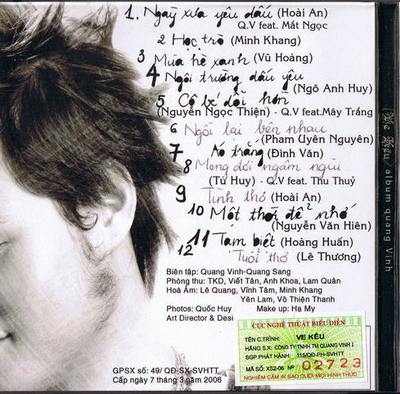 1. Ngày xưa yêu dấu (Hoài An)
Q.V feat. Mắt Ngọc
2 Học trò (Minh Khang)
3 Mùa hè xanh (Vũ Hoàng)
4 Ngôi trường dấu yêu
(Ngô Anh Huy)
5 Cô bé dỗi hờn
(Nguyễn Ngọc Thiện) - Q.V feat.Mây Trắng
6 Ngồi lại bên nhau
(Phạm Uyên Nguyên)
7 Nỏ trắng (Đình Văn)
8 Mong đợi ngậm ngùi
(Từ Huy) - Q.V feat. Thu Thuỷ
9 Tình thơ (Hoài An)
10 Một thời để nhớ
(Nguyễn Văn Hiên)
11 Tạm biệt (Hoàng Huấn)
12 Tuổi thơ (Lê Thương)
Biên tập: Quang Vinh-Quang Sang
Phòng thu: TKD, Viết Tân, Anh Khoa, Lam Quân
Hoà Âm: Lê Quang, Vĩnh Tâm, Minh Khang
Yên Lam, Võ Thiện Thanh
Photos: Quốc Huy Make up: Hạ My
Art Director & Desi
GPSX số: 49/ QĐ-SX-SVHTT
Cấp ngày 7 tháng 3 năm 2006
CỤC NGHỆ THUẬT BIỂU DIỄN
TÊN C.TRÌNH: VE KÊU
HÃNG S.X: CÔNG TY TNHH TM QUANG VINH I
SGP PHÁT HÀNH: 115/QĐ-PH-SVHTT
MÃ SỐ: X52-06 Nº 02723
NGHIÊM CẤM IN SAO DƯỚI MỌI HÌNH THỨC
Ve Kêu/album quang Vinh